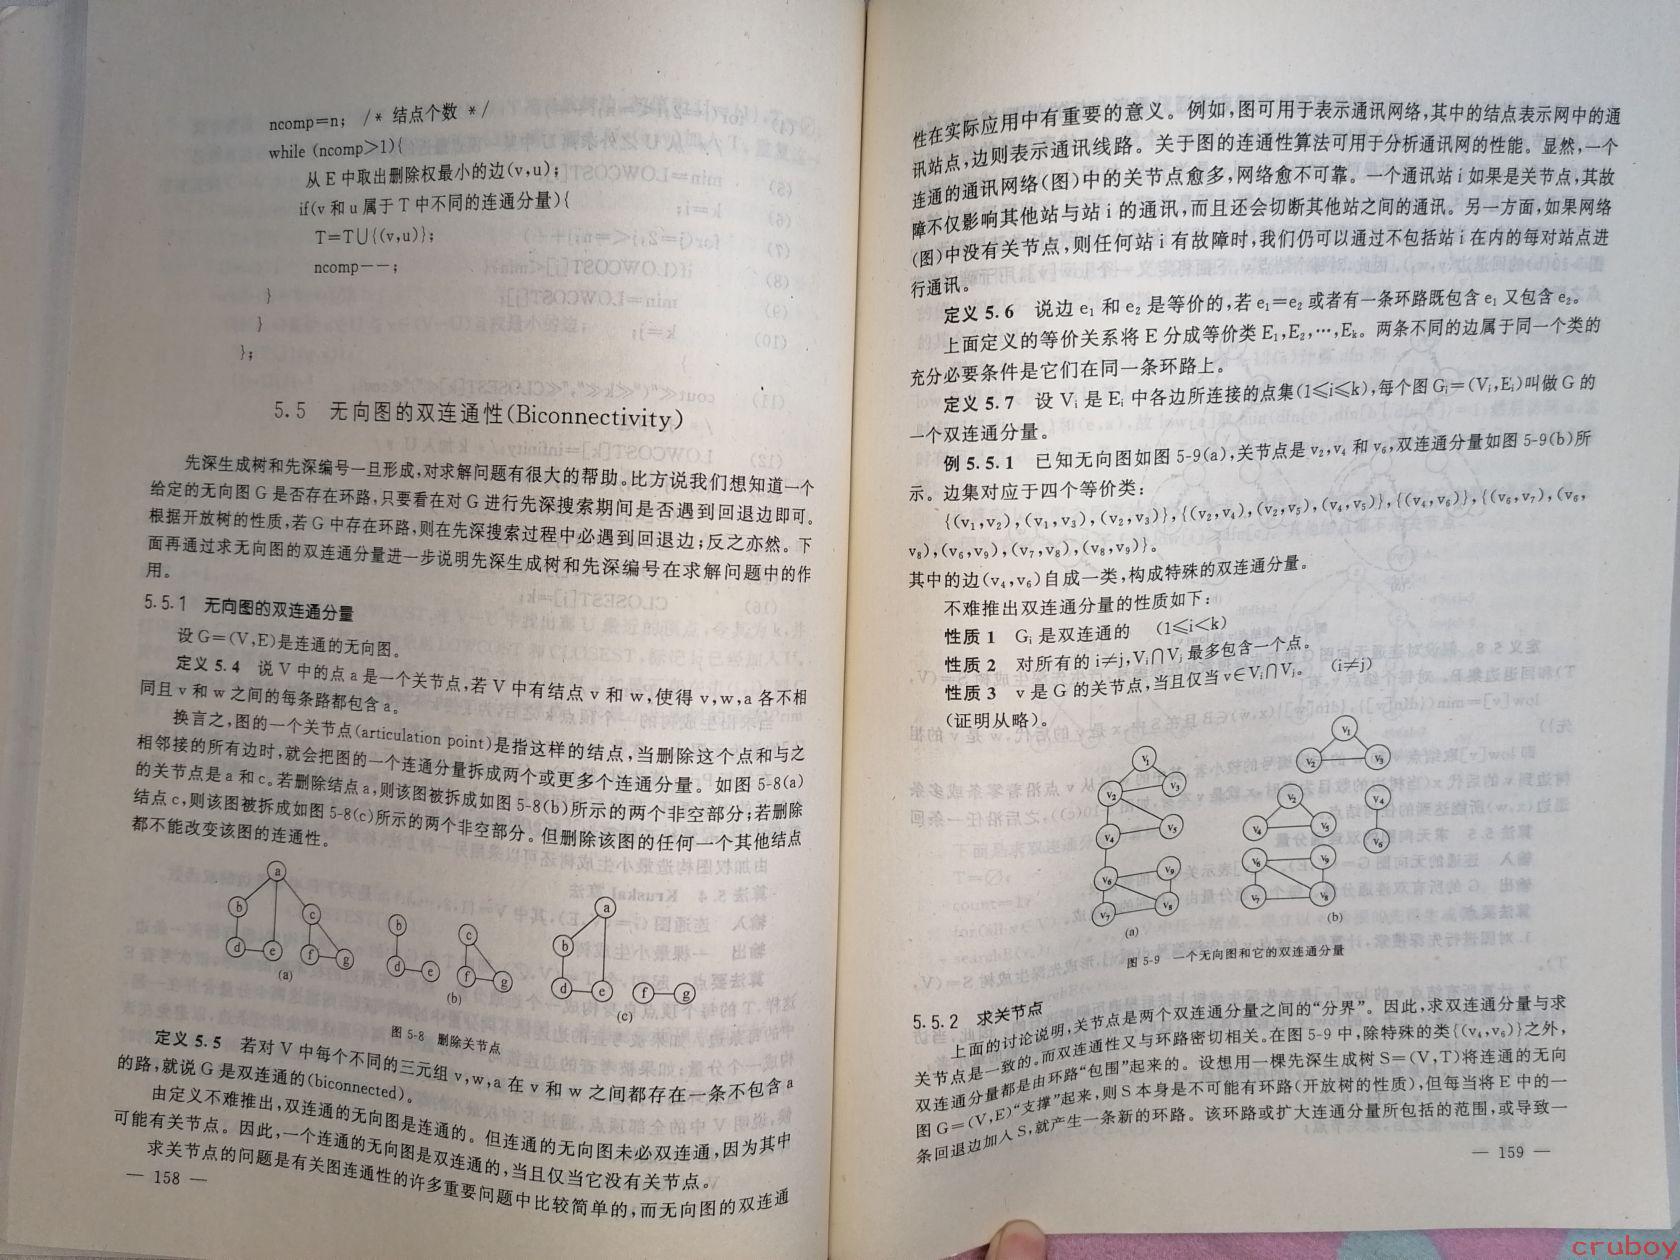 ncomp=n; /* 结点个数 */
while (ncomp>1){
从E中取出删除权最小的边(v,u);
if(v和u属于T中不同的连通分量){
T=T∪{(v,u)};
ncomp--;
}
}
};
5.5 无向图的双连通性(Biconnectivity)
先深生成树和先深编号一旦形成,对求解问题有很大的帮助。比方说我们想知道一个
给定的无向图G是否存在环路,只要看在对G进行先深搜索期间是否遇到回退边即可。
根据开放树的性质,若G中存在环路,则在先深搜索过程中必遇到回退边;反之亦然。下
面再通过求无向图的双连通分量进一步说明先深生成树和先深编号在求解问题中的作
用。
5.5.1 无向图的双连通分量
设G=(V,E)是连通的无向图。
定义5.4 说V中的点a是一个关节点,若V中有结点v和w,使得v,w,a各不相
同且v和w之间的每条路都包含a。
换言之,图的一个关节点(articulation point)是指这样的结点,当删除这个点和与之
相邻接的所有边时,就会把图的一个连通分量拆成两个或更多个连通分量。如图5-8(a)
的关节点是a和c。若删除结点a,则该图被拆成如图5-8(b)所示的两个非空部分;若删除
结点c,则该图被拆成如图5-8(c)所示的两个非空部分。但删除该图的任何一个其他结点
都不能改变该图的连通性。
a
b c
d e f g
(a)
b c
d e f g
(b)
a
b
d e f g
(c)
图5-8 删除关节点
定义5.5 若对V中每个不同的三元组v,w,a在v和w之间都存在一条不包含a
的路,就说G是双连通的(biconnected)。
由定义不难推出,双连通的无向图是连通的。但连通的无向图未必双连通,因为其中
可能有关节点。因此,一个连通的无向图是双连通的,当且仅当它没有关节点。
求关节点的问题是有关图连通性的许多重要问题中比较简单的,而无向图的双连通
— 158 —
性在实际应用中有重要的意义。例如,图可用于表示通讯网络,其中的结点表示网中的通
讯站点,边则表示通讯线路。关于图的连通性算法可用于分析通讯网的性能。显然,一个
连通的通讯网络(图)中的关节点愈多,网络愈不可靠。一个通讯站i如果是关节点,其故
障不仅影响其他站与站i的通讯,而且还会切断其他站之间的通讯。另一方面,如果网络
(图)中没有关节点,则任何站i有故障时,我们仍可以通过不包括站i在内的每对站点进
行通讯。
定义5.6 说边e₁和e₂是等价的,若e₁=e₂或者有一条环路既包含e₁又包含e₂。
上面定义的等价关系将E分成等价类E₁,E₂,…,Eₖ。两条不同的边属于同一个类的
充分必要条件是它们在同一条环路上。
定义5.7 设Vᵢ是Eᵢ中各边所连接的点集(1≤i≤k),每个图Gᵢ=(Vᵢ,Eᵢ)叫做G的
一个双连通分量。
例5.5.1 已知无向图如图5-9(a),关节点是v₂,v₄和v₆,双连通分量如图5-9(b)所
示。边集对应于四个等价类:
{(v₁,v₂),(v₁,v₃),(v₂,v₃)},{(v₂,v₄),(v₂,v₅),(v₄,v₅)},{(v₄,v₆)},{(v₆,v₇),(v₆,
v₈),(v₆,v₉),(v₇,v₈),(v₈,v₉)}。
其中的边(v₄,v₆)自成一类,构成特殊的双连通分量。
不难推出双连通分量的性质如下:
性质1 Gᵢ是双连通的 (1≤i<k)
性质2 对所有的i≠j,Vᵢ∩Vⱼ最多包含一个点。
性质3 v是G的关节点,当且仅当v∈Vᵢ∩Vⱼ。 (i≠j)
(证明从略)。
v₁
v₂ v₃
v₄ v₅
v₆ v₉
v₇ v₈
(a)
v₁
v₂ v₃
v₂ v₄
v₄ v₅ v₆
v₆ v₉
v₇ v₈
(b)
图5-9 一个无向图和它的双连通分量
5.5.2 求关节点
上面的讨论说明,关节点是两个双连通分量之间的“分界”。因此,求双连通分量与求
关节点是一致的。而双连通性又与环路密切相关。在图5-9中,除特殊的类{(v₄,v₆)}之外,
双连通分量都是由环路“包围”起来的。设想用一棵先深生成树S=(V,T)将连通的无向
图G=(V,E)“支撑”起来,则S本身是不可能有环路(开放树的性质),但每当将E中的一
条回退边加入S,就产生一条新的环路。该环路或扩大连通分量所包括的范围,或导致一
— 159 —
cruboy